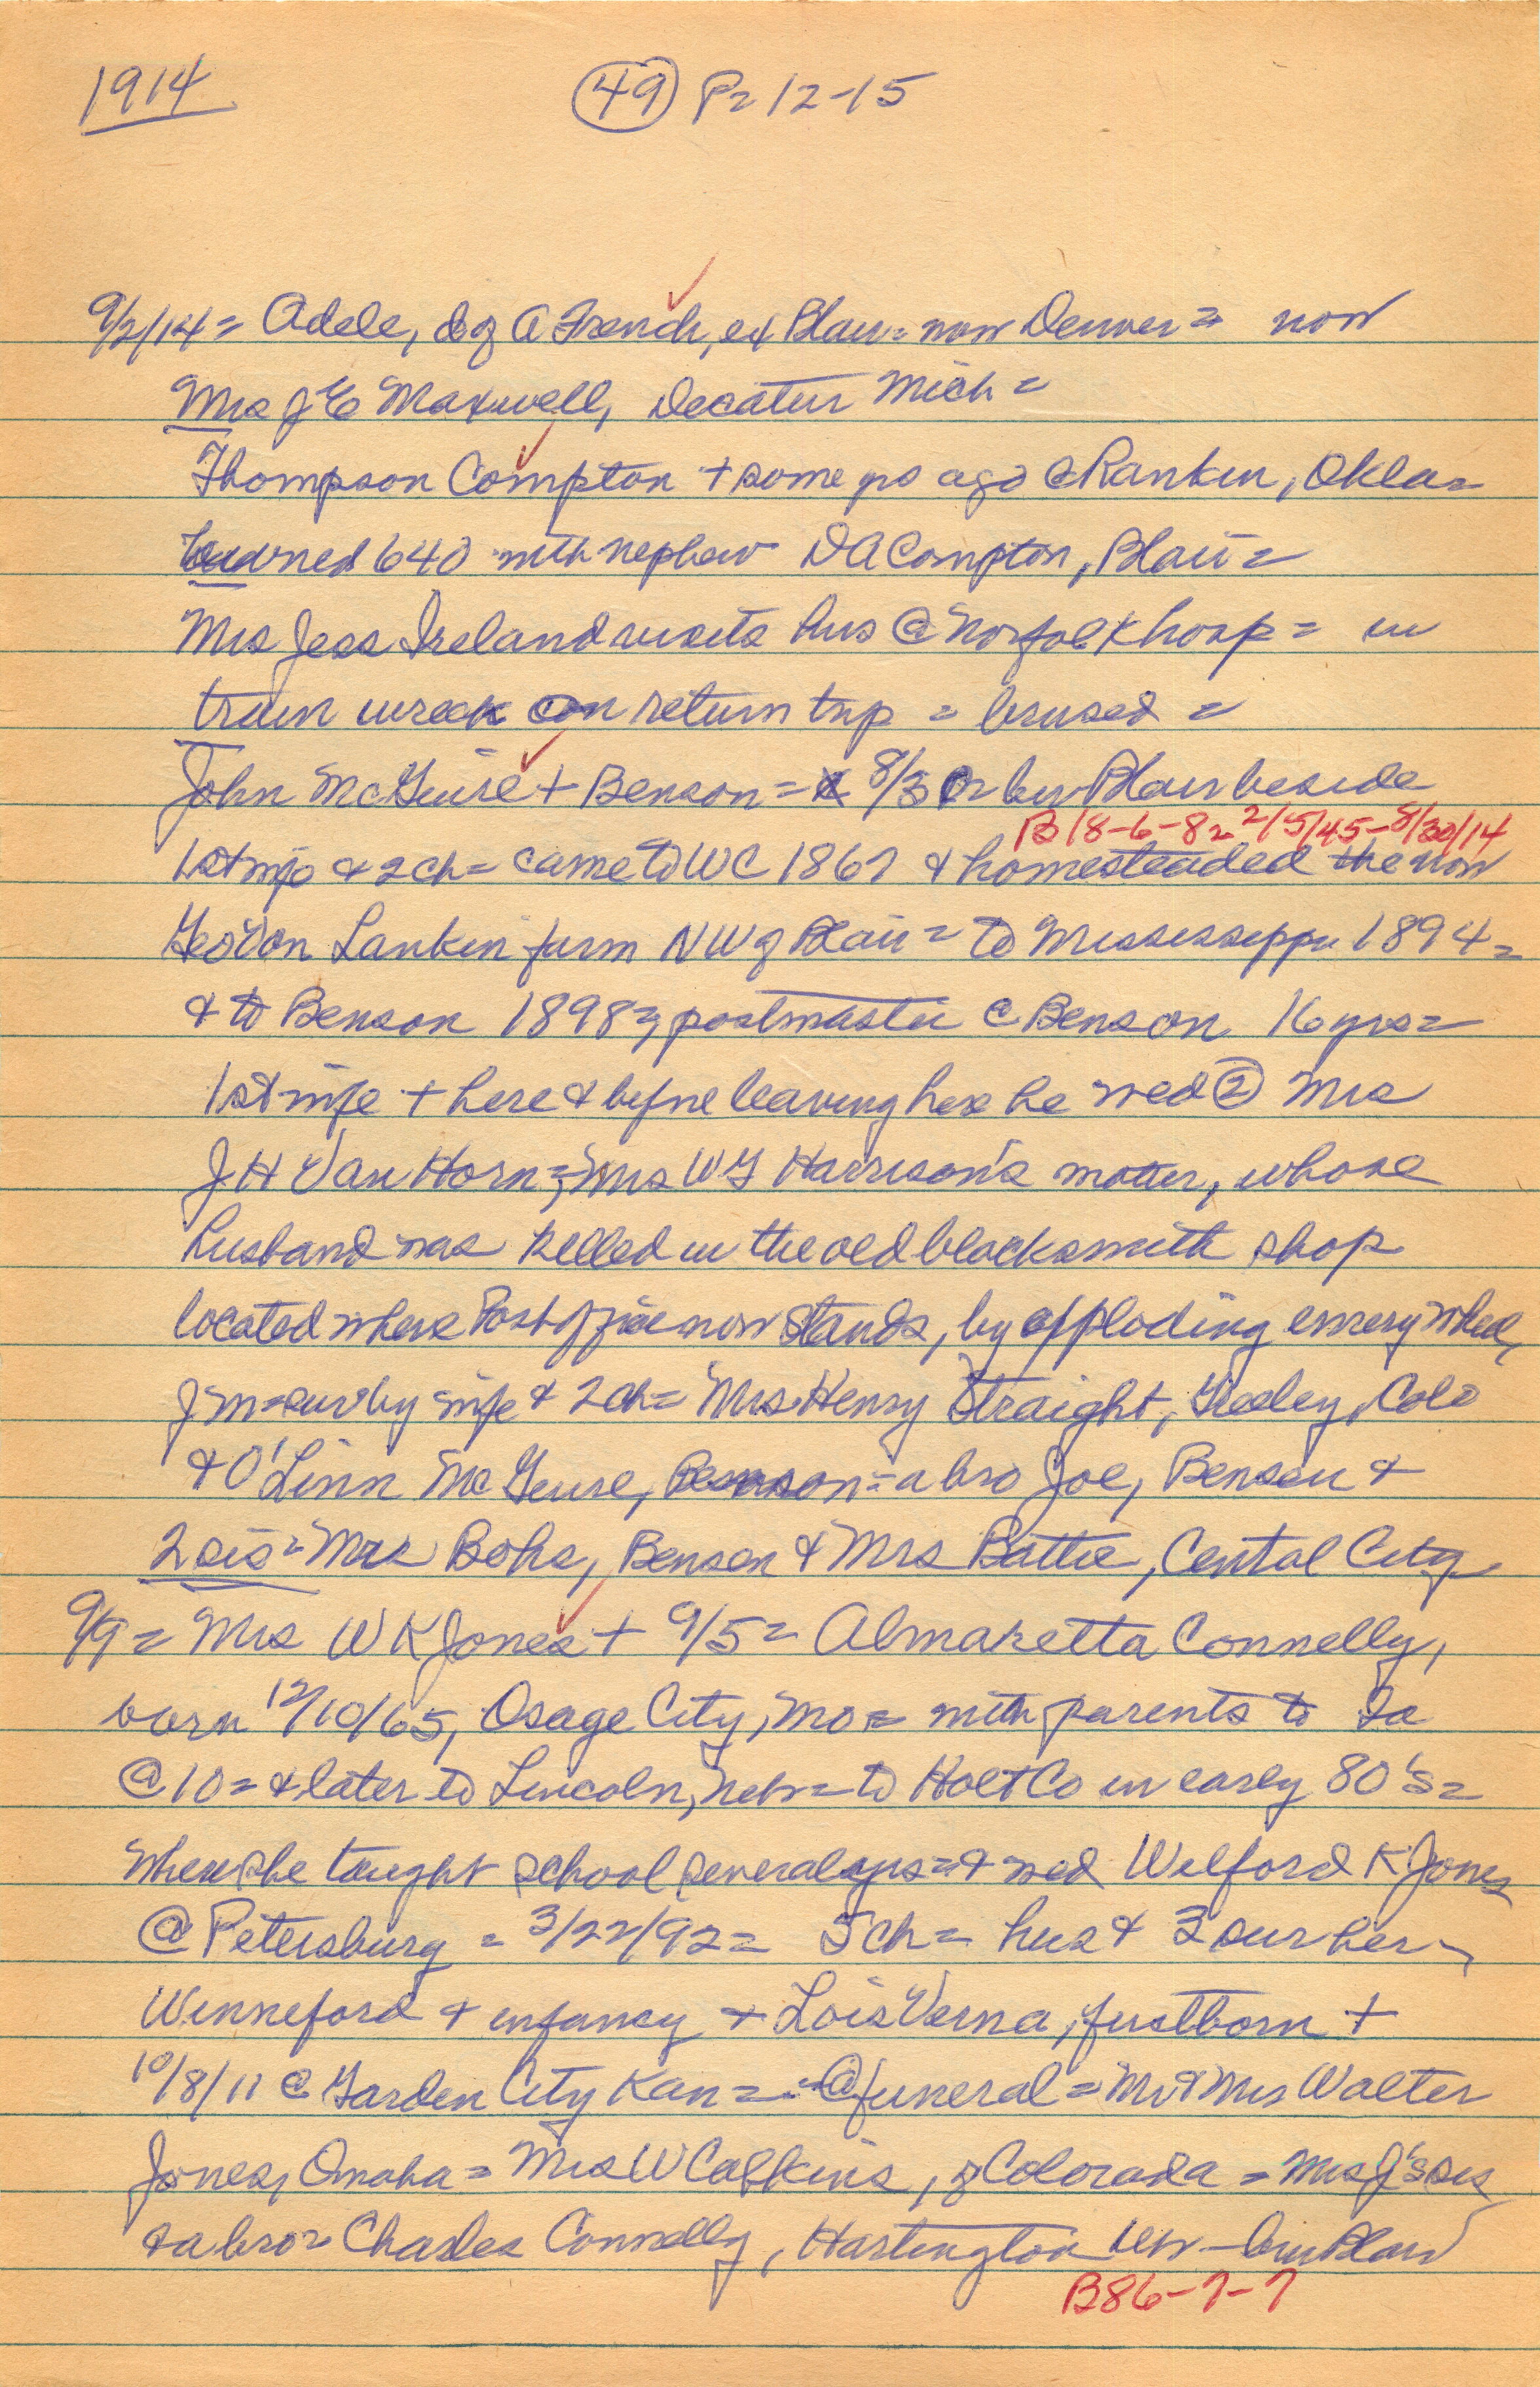 1914 (49) P= 12-15
9/2/14= Adele, d of A French, ex Blair= now Denver= now
Mrs J E Maxwell, Decatur Mich=
Thompson Compton + some yrs ago @ Rankin, Okla=
owned 640 with nephew D A Compton, Blair=
Mrs Jess Ireland visits hus @ Norfolk hosp= in
train wreck on return trip = brused =
John McGuire + Benson = 8/30= bur Blair beside
B 18-6-8= 2/5/45-8/30/14
1st wife & 2 ch= came to WC 1867 & homesteaded the now
Geo Von Lanken farm NW of Blair= to Mississippi 1894=
& to Benson 1898=, postmaster @ Benson 16 yrs=
1st wife + here & before leaving here he wed (2) Mrs
J H Van Horn=, Mrs W G Harrison's mother, whose
husband was killed in the old blacksmith shop
located where Post office now stands, by exploding emery wheel,
J M= sur by wife & 2 ch= Mrs Henry Straight, Greeley, Colo
& O'Linn McGuire, Benson= a bro Joe, Benson &
2 sis= Mrs Bohs, Benson & Mrs Battie, Cental City
9/9= Mrs W K Jones + 9/5= Almaretta Connelly,
born 12/10/65, Osage City, Mo= with parents to Ia
@ 10= & later to Lincoln, Neb= to Holt Co in early 80's=
where she taught school several yrs= & wed Welford K Jones
@ Petersburg = 3/22/92= 5 ch= hus & 3 sur her=,
Winneford + infancy + Lois Verna, first born +
10/8/11 @ Garden City Kan= @ funeral= Mr & Mrs Walter
Jones, Omaha= Mrs W Calkins, of Colorada = Mrs J's sis
& a bro= Charles Connelly, Hartington Neb - bur Blair
B86-7-7